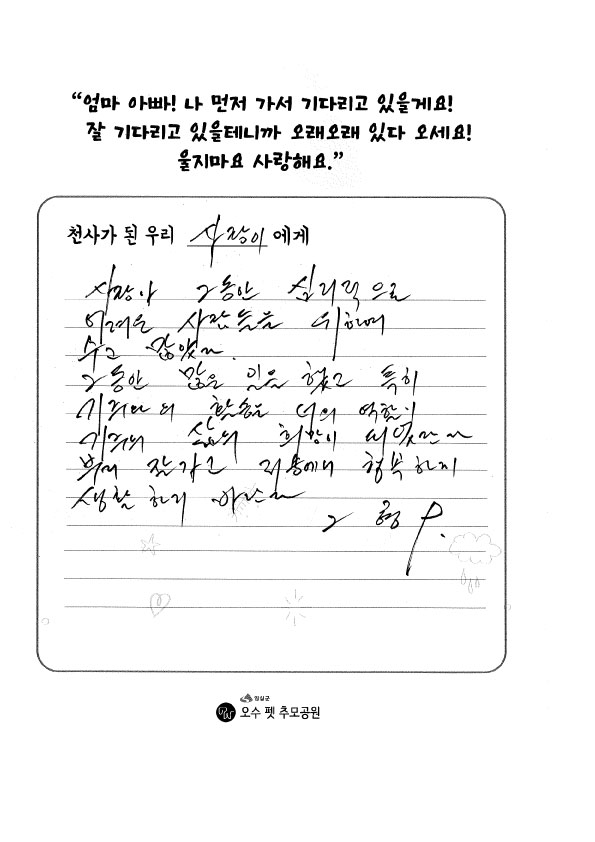 “엄마 아빠! 나 먼저 가서 기다리고 있을게요!
잘 기다리고 있을테니까 오래오래 있다 오세요!
울지마요 사랑해요.”
천사가 된 우리 사장이 에게
사장아 그동안 심리적으로
어려운 사람들을 위하여
수고 많았다.
그동안 많은 일을 했고 특히
의 활동은 너의 역할이
삶의 희망이 되었단다
부디 잘가고 저승에서 행복하게
생활 하기 바란다
그 형
임실군
오수 펫 추모공원